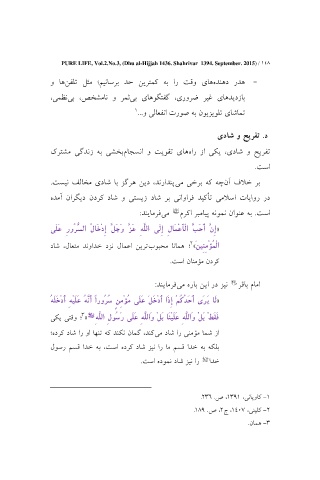 PURE LIFE, Vol.2.No.3, (Dhu al-Hijjah 1436. Shahrivar 1394. September. 2015) / ۱۱۸
- هدر دهنده‌های وقت را به کمترین حد برسانیم؛ مثل تلفن‌ها و
بازدیدهای غیر ضروری، گفتگوهای بی‌ثمر و نامشخص، بی‌نظمی،
تماشای تلویزیون به صورت انفعالی و...۱
د. تفریح و شادی
تفریح و شادی، یکی از راه‌های تقویت و انسجام‌بخشی به زندگی مشترک
است.
بر خلاف آن‌چه که برخی می‌پندارند، دین هرگز با شادی مخالف نیست.
در روایات اسلامی تأکید فراوانی بر شاد زیستی و شاد کردن دیگران آمده
است. به عنوان نمونه پیامبر اکرمﷺ می‌فرمایند:
«إِنَّ أَحَبَّ الْأَعْمَالِ إِلَی اللَّهِ عَزَّ وَجَلَّ إِدْخَالُ السُّرُورِ عَلَی
الْمُؤْمِنِینَ»۲؛ همانا محبوب‌ترین اعمال نزد خداوند متعال، شاد
کردن مؤمنان است.
امام باقر نیز در این باره می‌فرمایند:
«لَا یَرَی أَحَدُکُمْ إِذَا أَدْخَلَ عَلَی مُؤْمِنٍ سُرُوراً أَنَّهُ عَلَیْهِ أَدْخَلَهُ
فَقَطْ بَلْ وَاللَّهِ عَلَیْنَا بَلْ وَاللَّهِ عَلَی رَسُولِ اللَّهِﷺ»۳؛ وقتی یکی
از شما مؤمنی را شاد می‌کند، گمان نکند که تنها او را شاد کرده؛
بلکه به خدا قسم ما را نیز شاد کرده است، به خدا قسم رسول
خداﷺ را نیز شاد نموده است.
۱- کاویانی، ۱۳۹۱، ص. ۲۳۶.
۲- کلینی، ۱۴۰۷، ج۲، ص. ۱۸۹.
۳- همان.